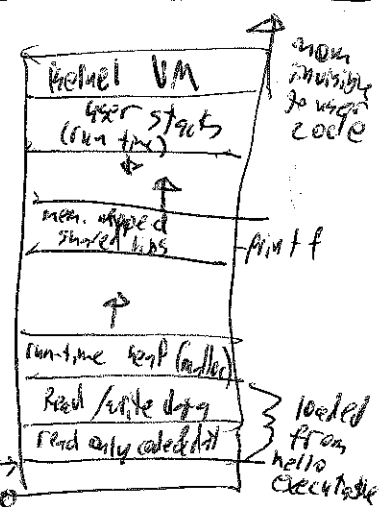 Kernel VM
mem invisible to user code
user stacks
(run time)
mem. mapped
shared libs
printf
run-time heap (malloc)
Read/write data
read only code & dat
loaded
from
hello
executable
0